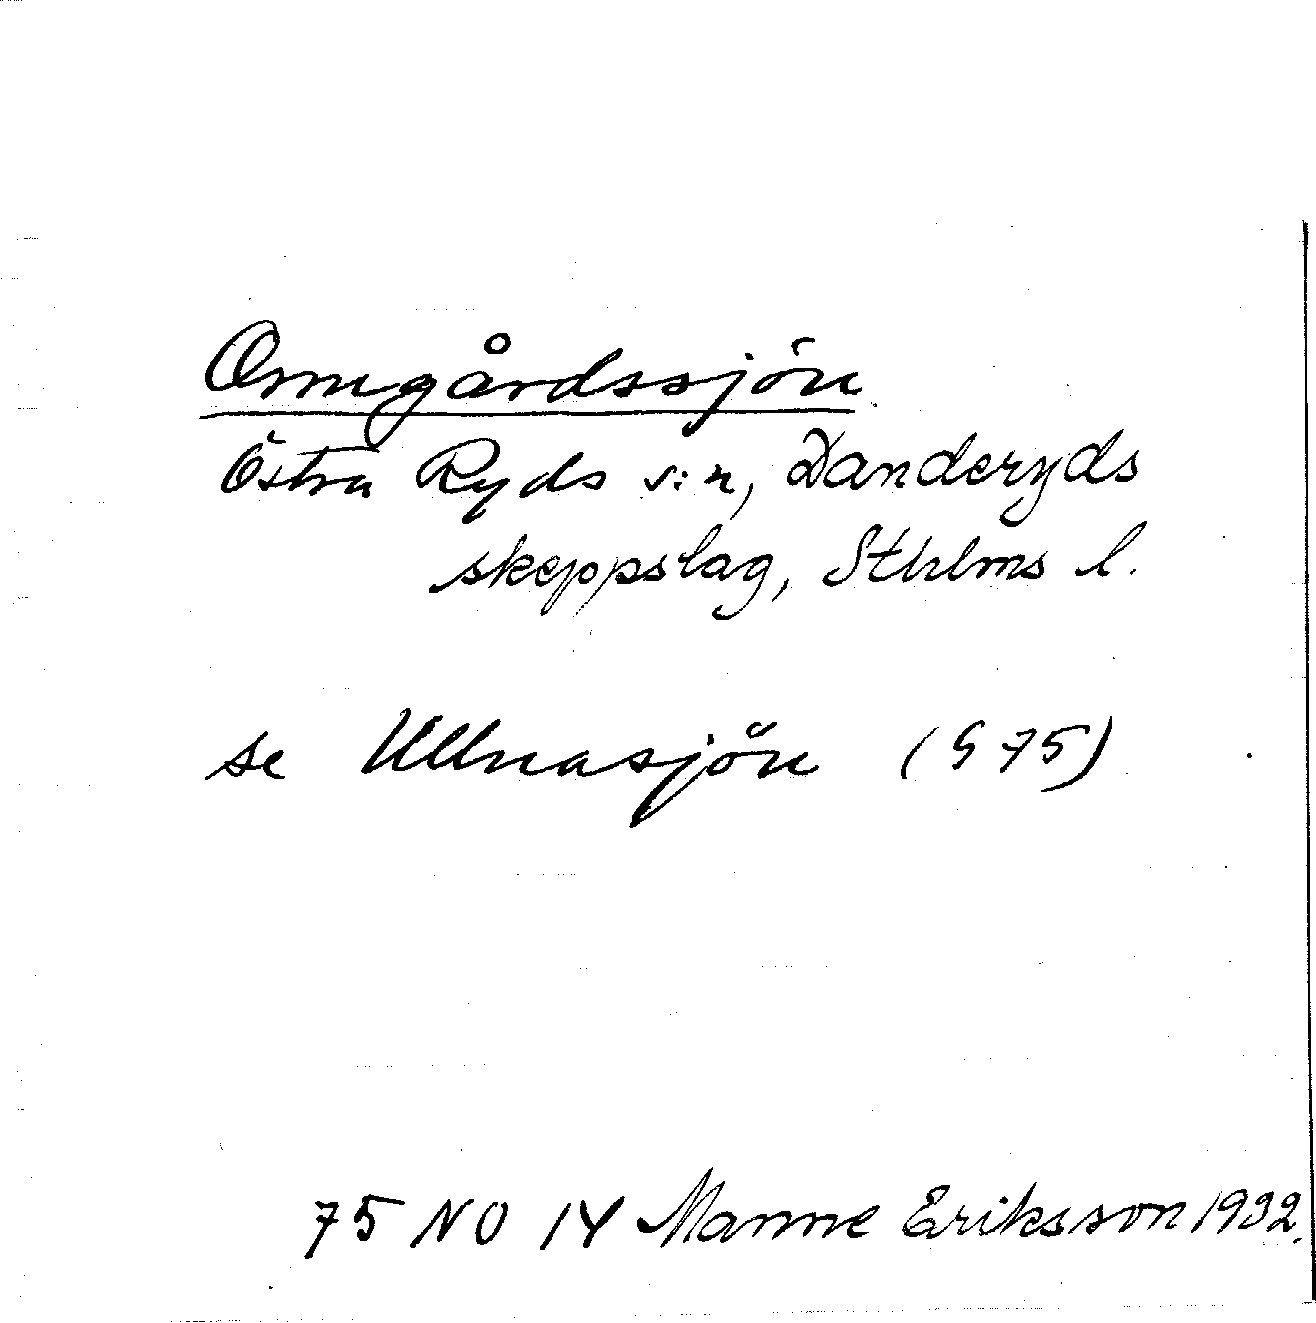 Ormgårdssjön
Östra Ryds s:n, Danderyds
skeppslag, Sthlms l.
se Ullnasjön (S 75)
75 NO 14 Manne Eriksson 1932.